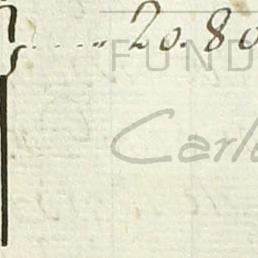 20.80
FUND
Carlo